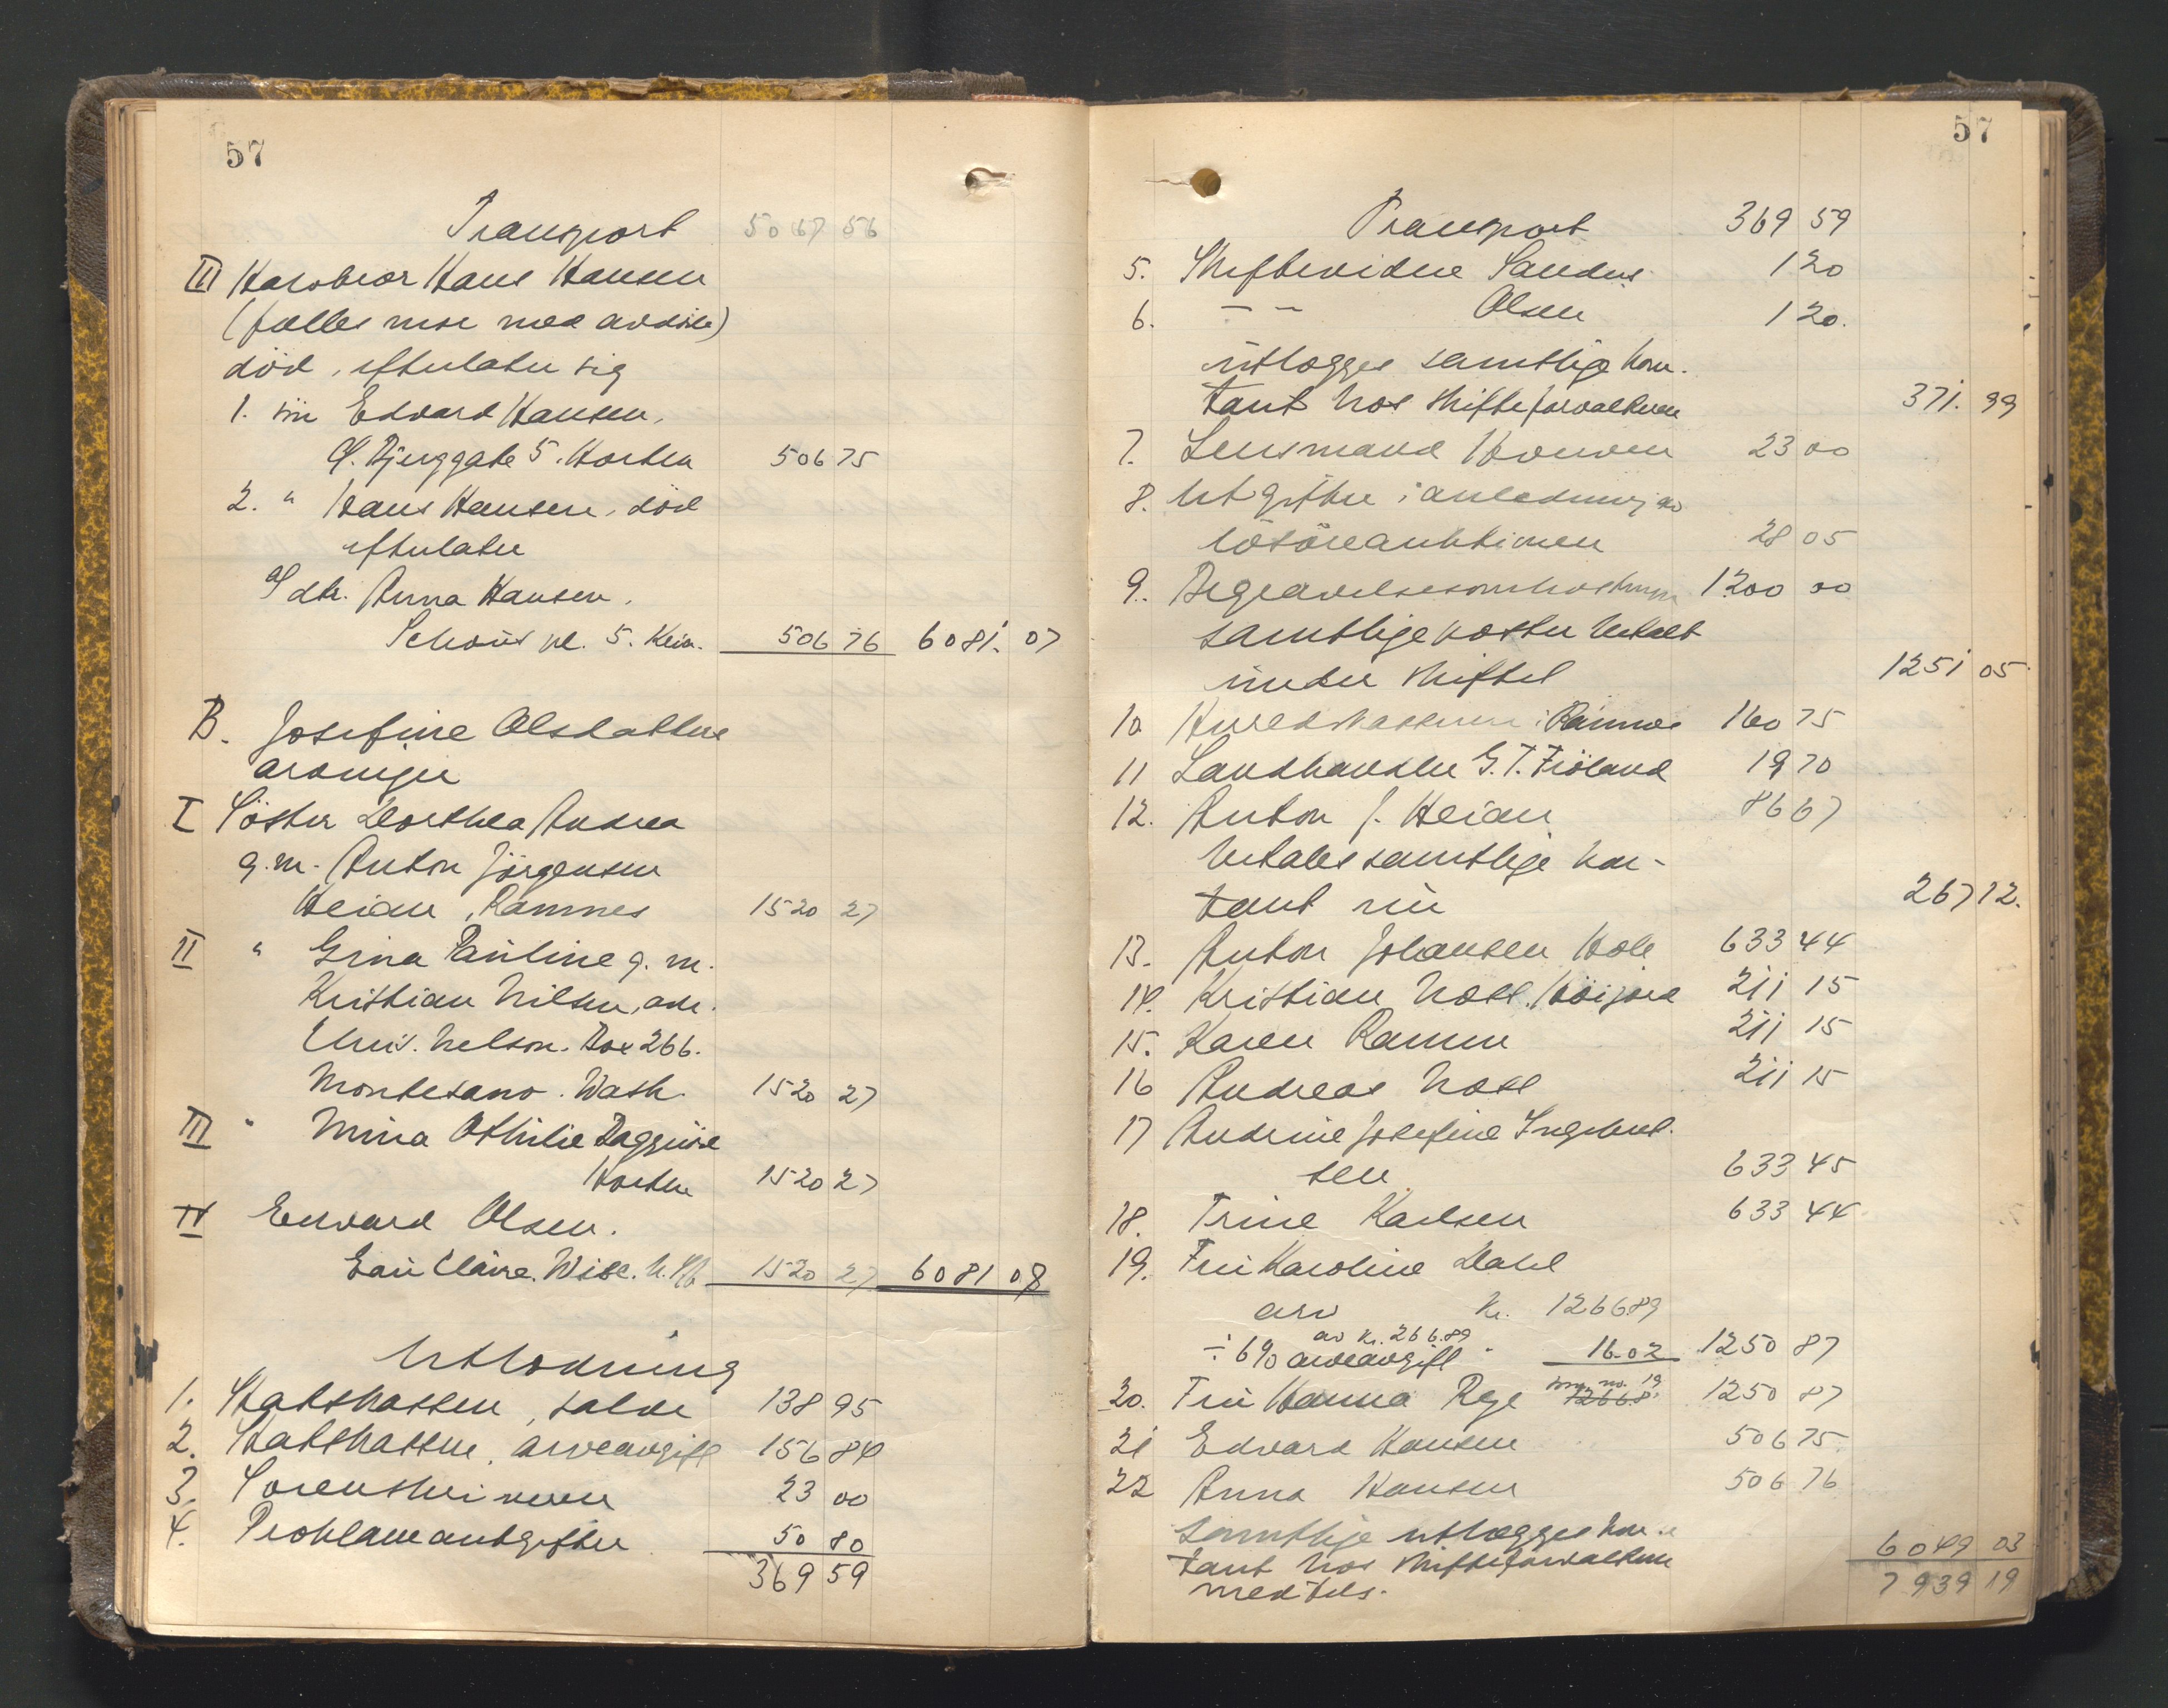 57
Transport 5067 56
III Halvbror Hans Hansen
(fælles mor med avdøde)
död, efterlater sig
1. sön Edvard Hansen,
Bjerggate 5. Horten 506 75
2. " Hans Hansen, död
efterlater
dtr. Anna Hansen,
Schous pl. 5. Kria. 506 76 6081. 07
B. Josefine Olsdatters
arvinger
I Söster Dorthea Andrea
g. m. Anton Jörgensen
Heian, Ramnes 1520 27
II " Gina Pauline g. m.
Kristian Nilsen, adr.
Chris. Nelson. Box 266.
Montesano. Wash. 1520 27
III " Mina Othilie Baggerøe
Horten 1520 27
IV Edvard Olsen.
Eau Claire. Wisc. 1520 27 6081 08
Utlodning
1. Statskassen, salær 138 95
2. Statskassen, arveavgift 156 84
3. Sorenskriveren 23 00
4. Proklamautgifter 50 80
369 59
57
Transport 369 59
5. Skiftevidne Sanders 1 20
6. – – Olsen 1 20.
utlægges samtlige kon-
tant hos skifteforvalteren 371. 99
7. Lensmand Horven 23 00
8. Utgifter i anledning av
lösöreauktionen 28 05
9. Begravelsesomkostninger 1200 00
samtlige poster betalt
under skiftet 1251 05
10 Herredskassereren i Ramnes 160 75
11 Landhandler G. T. Fröland 19 70
12. Anton J. Heian 86 67
betales samtlige kon-
tant nu 267 12.
13. Anton Johansen Hole 633 44
14. Kristian Næss. Höijord 211 15
15. Karen Ramm 211 15
16 Andreas Næss 211 15
17 Andrine Josefine Ingebret-
sen 633 45
18. Trine Karlsen 633 44
19. Fru Karoline Dahl
arv kr. 1266.89
av kr. 266.89
÷ 6% arveavgift " 16.02 1250 87
20. Fru Hanna Rege som no. 19 1266.8 1250 87
21 Edvard Hansen 506 75
22 Anna Hansen 506 76
samtlige utlægges kon-
tant hos skifteforvalteren 6049 03
medtels. 7939 19